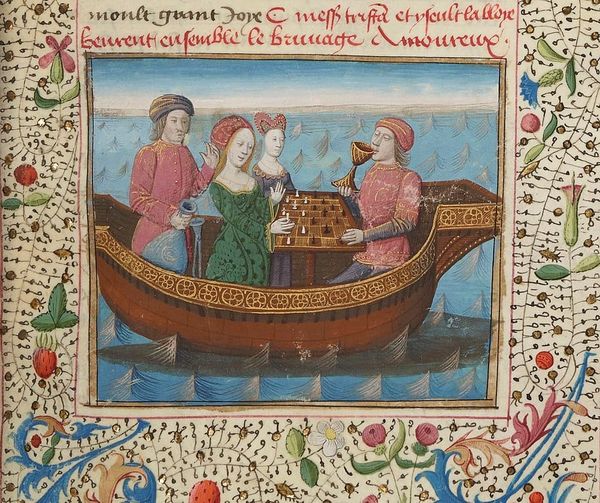 moult grant Joye C mess tristā et yseult la bloye
beurent ensemble le bruuage Amoureux.